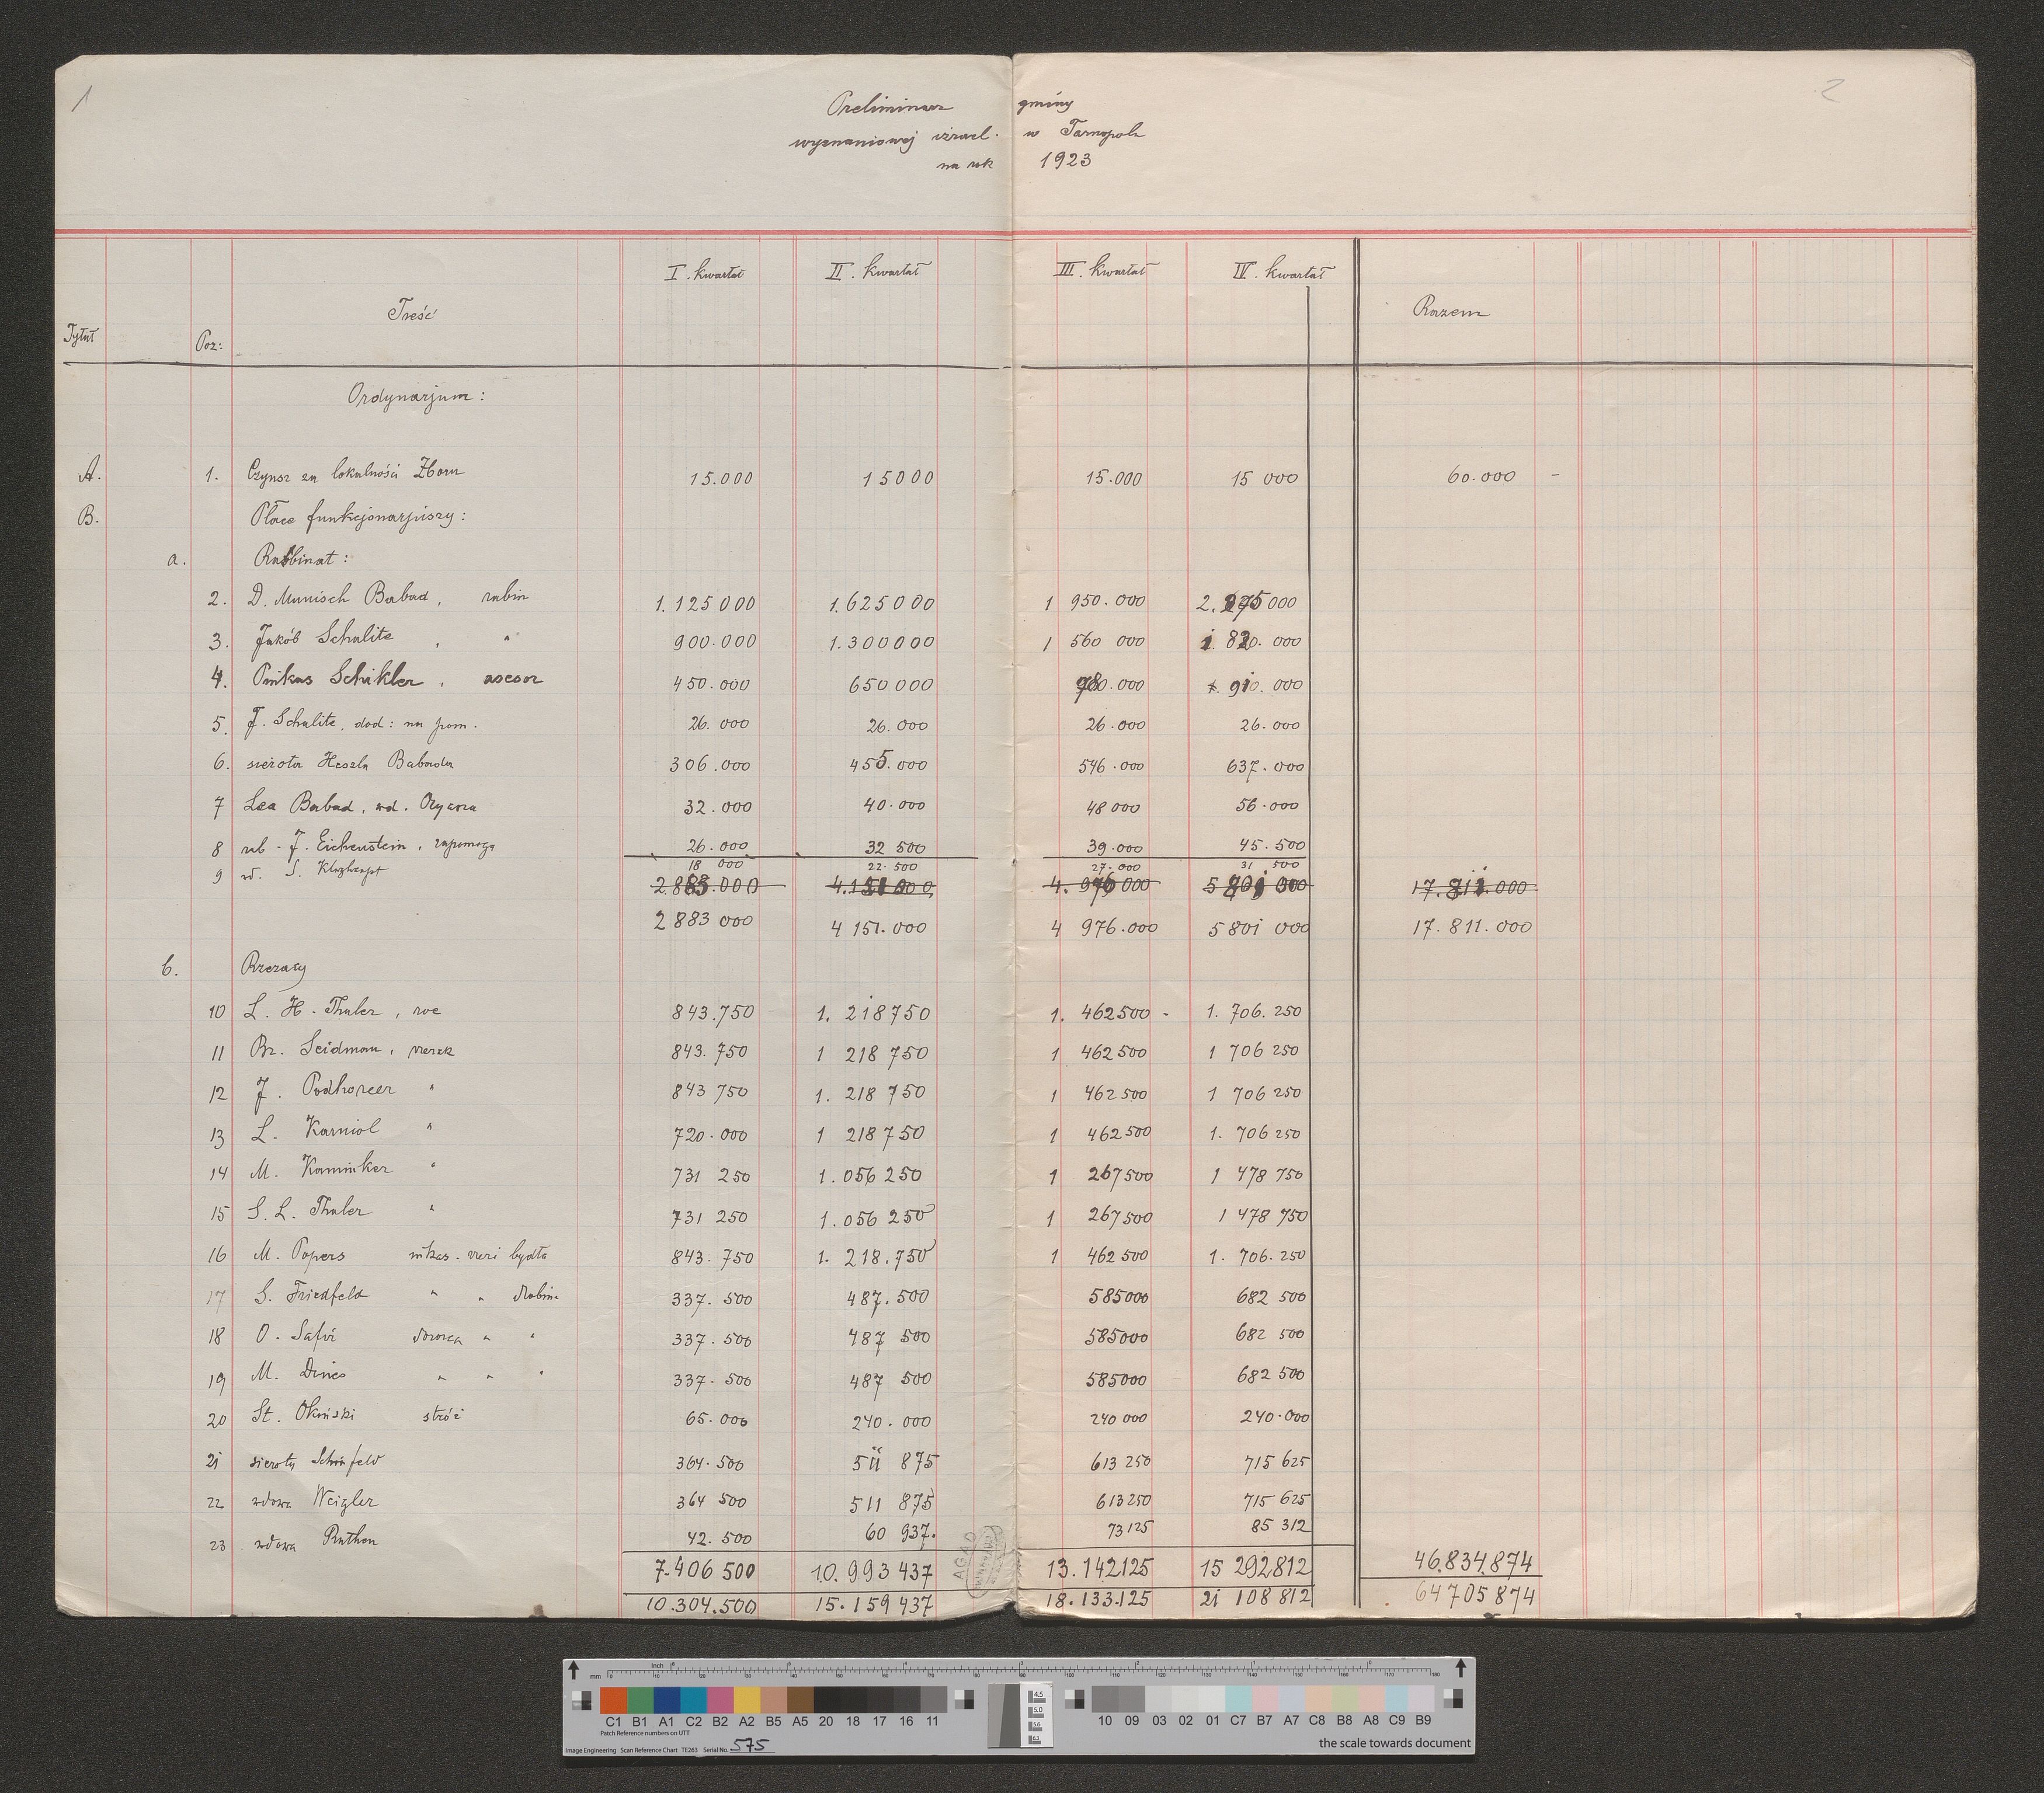 1
2
Preliminarz gminy
wyznaniowej izrael. w Tarnopolu
na rok 1923
Tytuł Poz: Treść I. kwartał II. kwartał III. kwartał IV. kwartał Razem
Ordynarjum:
A. 1. Czynsz za lokalności Zboru 15.000 15000 15.000 15 000 60.000 -
B. Płace funkcjonarjuszy:
a. Rabbinat:
2. D. Munisch Babad, rabin 1.125000 1.625000 1 950.000 2.275000
3. Jakób Schalite, " 900.000 1.300000 1 560 000 1. 820. 000
4. Pinkas Schikler, asesor 450.000 650000 780.000 910. 000
5. J. Schalite, dod: na pom. 26. 000 26.000 26.000 26.000
6. sierota Heszla Babada 306.000 455.000 546.000 637.000
7 Lea Babad, wd. 32.000 40.000 48000 56.000
8 rab. J. Eichenstein, zapomoga 26.000 32 500 39.000 45.500
9 w. S. 18 000 22.500 27.000 31 500
2.883.000 4.151000 4.976000 5 801 000 17.811.000
2 883 000 4 151.000 4 976.000 5 801 000 17. 811. 000
b. Rzezacy
10 L. H. Thaler, 843.750 1. 218750 1. 462500 - 1. 706. 250
11 Br. Seidman, rzezak 843. 750 1 218 750 1 462 500 1 706 250
12 J. Podhorcer " 843 750 1. 218 750 1 462 500 1 706 250
13 L. Karniol " 720.000 1 218 750 1 462 500 1. 706 250
14 M. Kaminker " 731 250 1.056 250 1 267500 1 478 750
15 S. L. Thaler " 731 250 1.056 250 1 267500 1 478 750
16 M. Popers inkas. rzezi bydła 843. 750 1. 218.750 1 462 500 1. 706. 250
17 S. Friedfeld " " drobiu 337. 500 487.500 585000 682 500
18 O. Safir dozorca " " 337. 500 487 500 585000 682 500
19 M. Dines " " " 337. 500 487 500 585000 682 500
20 St. Okiński stróż 65.000 240.000 240 000 240.000
21 sieroty Schönfeld 364.500 511 875 613 250 715 625
22 wdowa Weigler 364 500 511 875 613250 715 625
23 wdowa Rathen 42. 500 60 937. 73125 85 312
7.406 500 10. 993 437 13. 142125 15 292812 46.834.874
10.304.500 15.159 437 18.133.125 21 108 812 64705874
AGAD
mm inch
C1 B1 A1 C2 B2 A2 B5 A5 20 18 17 16 11 10 09 03 02 01 C7 B7 A7 C8 B8 A8 C9 B9
Patch Reference numbers on UTT
Image Engineering Scan Reference Chart TE263 Serial No. 575
the scale towards document